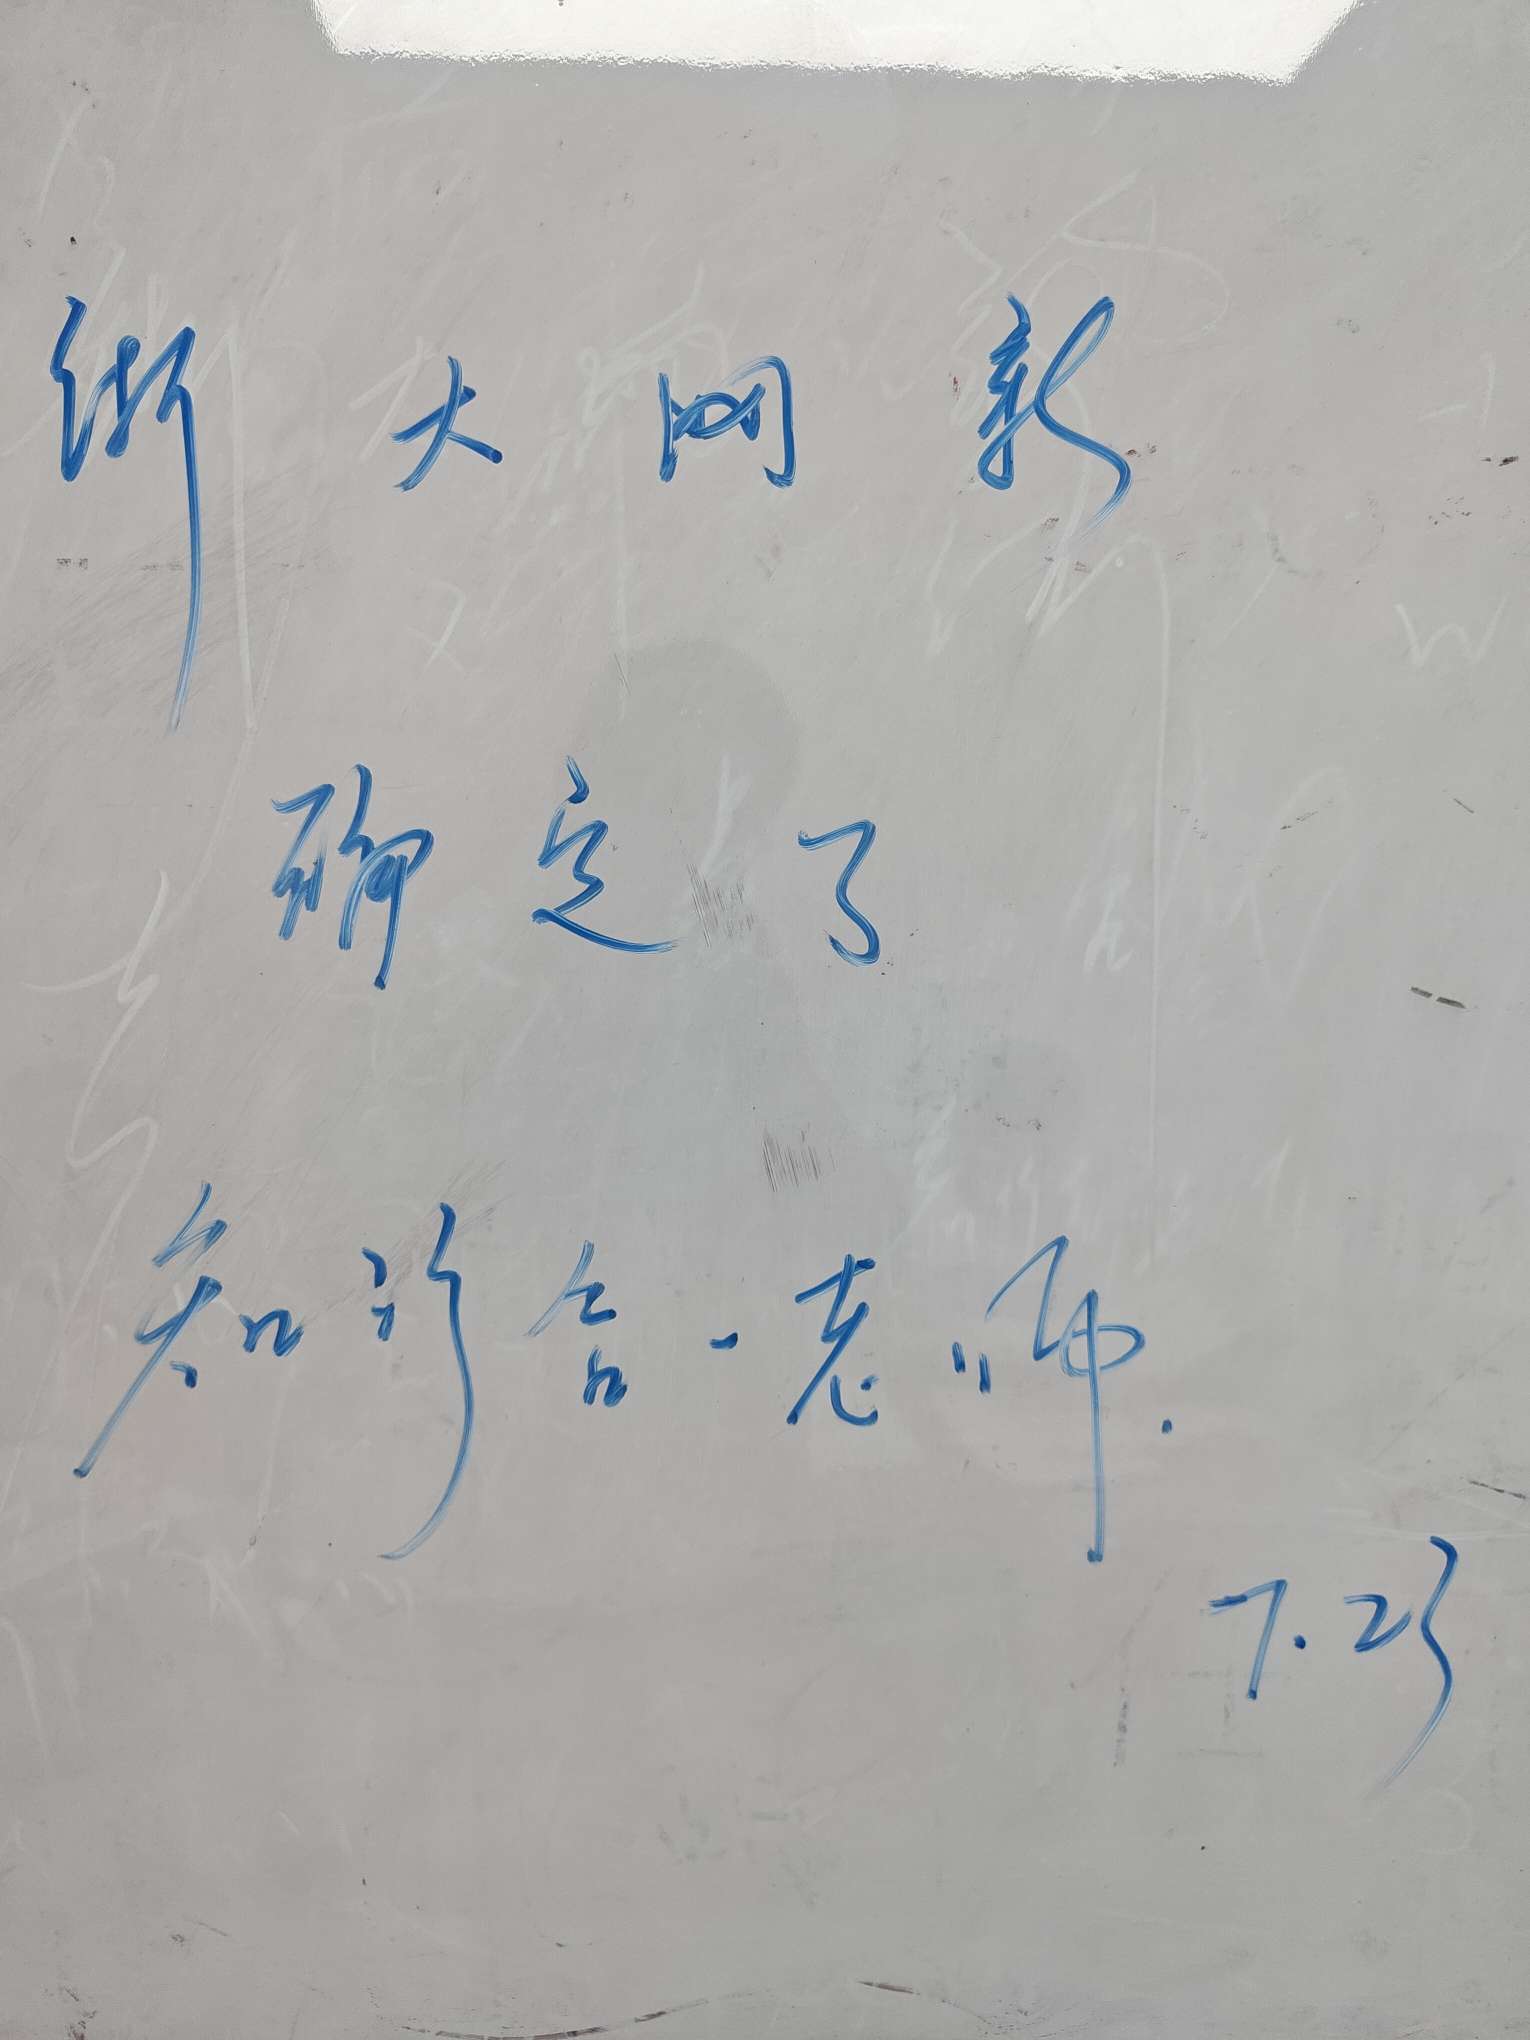 浙大网新
确定了
知行合一老师.
7.23